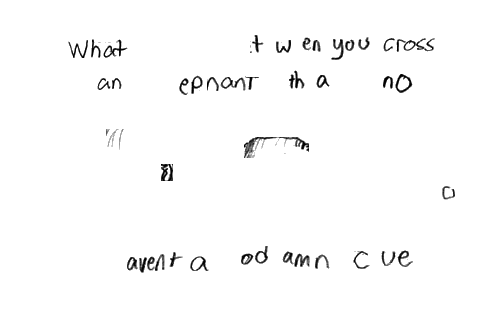 What t w en you cross
an epnanT th a no
avent a od amn c ue